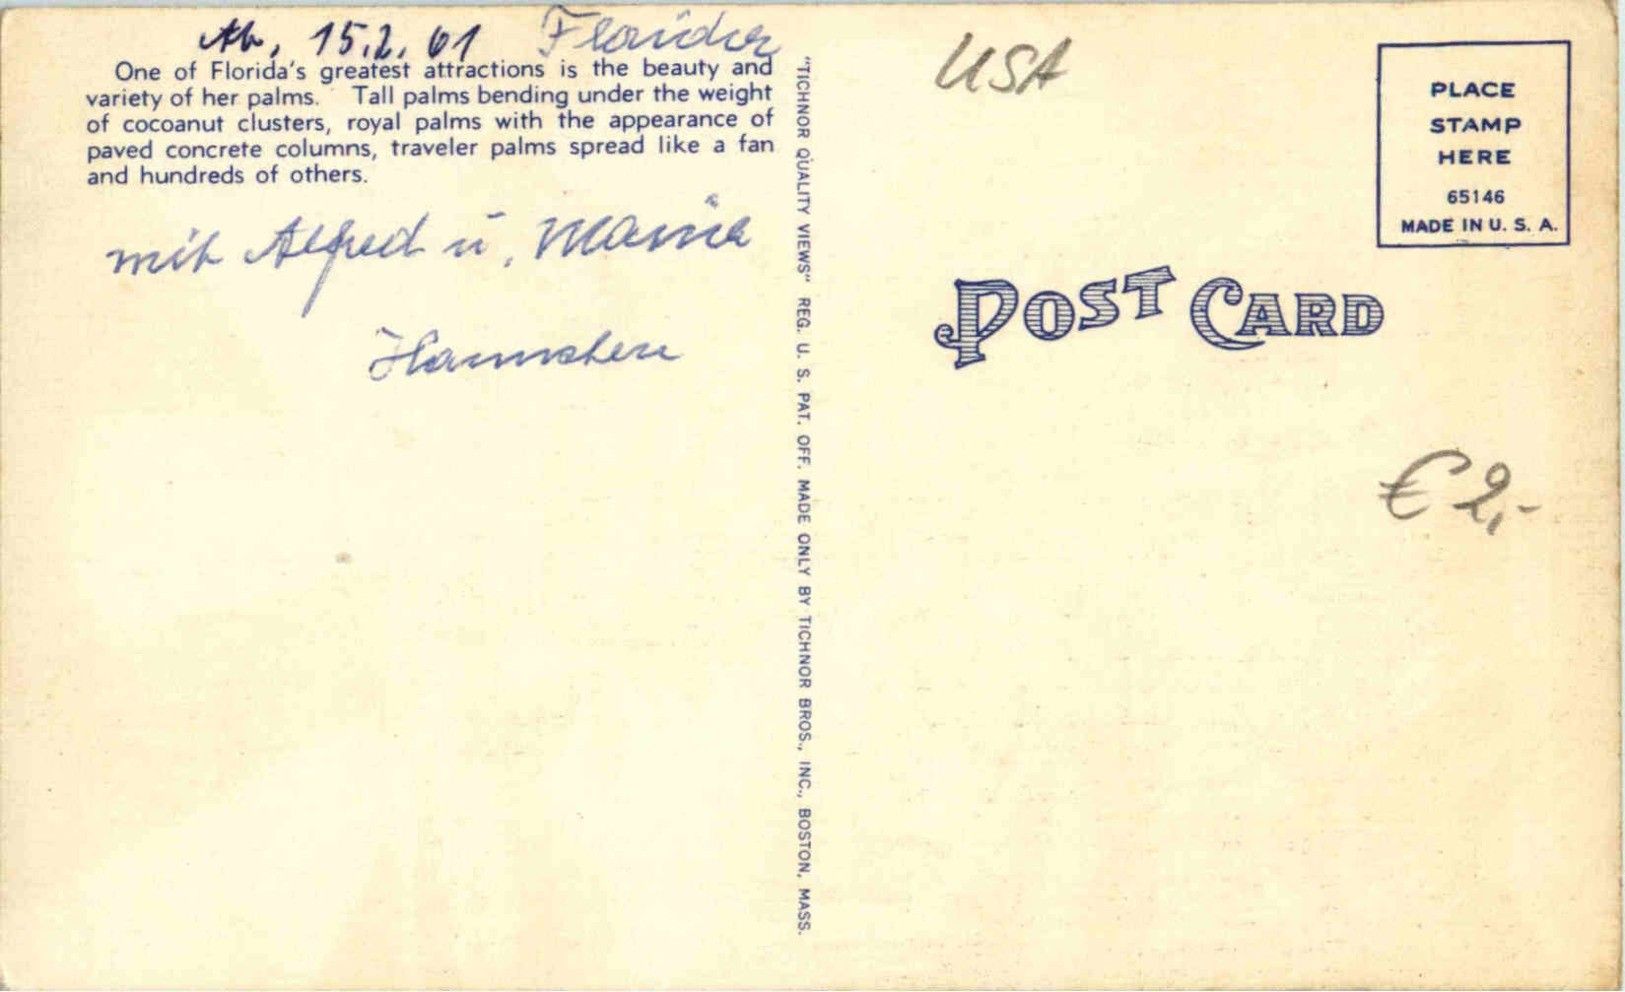 15.2.61 Florida
One of Florida's greatest attractions is the beauty and
variety of her palms. Tall palms bending under the weight
of cocoanut clusters, royal palms with the appearance of
paved concrete columns, traveler palms spread like a fan
and hundreds of others.
mit Alfred u. Maria
Hannchen
"TICHNOR QUALITY VIEWS" REG. U. S. PAT. OFF. MADE ONLY BY TICHNOR BROS., INC., BOSTON, MASS.
USA
PLACE
STAMP
HERE
65146
MADE IN U. S. A.
POST CARD
€ 2,-